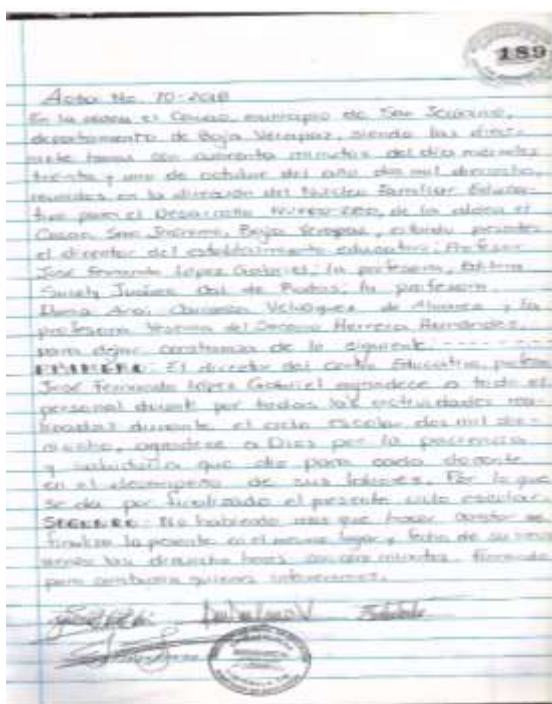 189
Acta No. 70-2018
En la aldea el Cacao, municipio de San Jerónimo,
departamento de Baja Verapaz, siendo las dieci
siete horas con cuarenta minutos del día miércoles
treinta y uno de octubre del año dos mil dieciocho,
reunidos en la dirección del Núcleo Familiar Educa-
tivo para el Desarrollo de la aldea el
Cacao, San Jerónimo, Baja Verapaz, estando presentes
el director del establecimiento educativo; Profesor
José Fernando López Gabriel, la profesora,
Juárez de la profesora
Velásquez de Álvarez y la
profesora Yesenia del Socorro Herrera Hernández,
para dejar constancia de lo siguiente.
PRIMERO: El director del centro Educativo, profesor
José Fernando López Gabriel agradece a todo el
personal docente por todas las actividades rea-
lizadas durante el ciclo Escolar dos mil die-
ciocho, agradece a Dios por la paciencia
y sabiduría que dio para cada docente
en el desempeño de sus labores. Por lo que
se da por finalizado el presente ciclo escolar.
SEGUNDO: No habiendo más que hacer constar se
finaliza la presente en el mismo lugar y fecha de su inicio
siendo las dieciocho horas minutos. Firmando
para constancia quienes intervenimos.